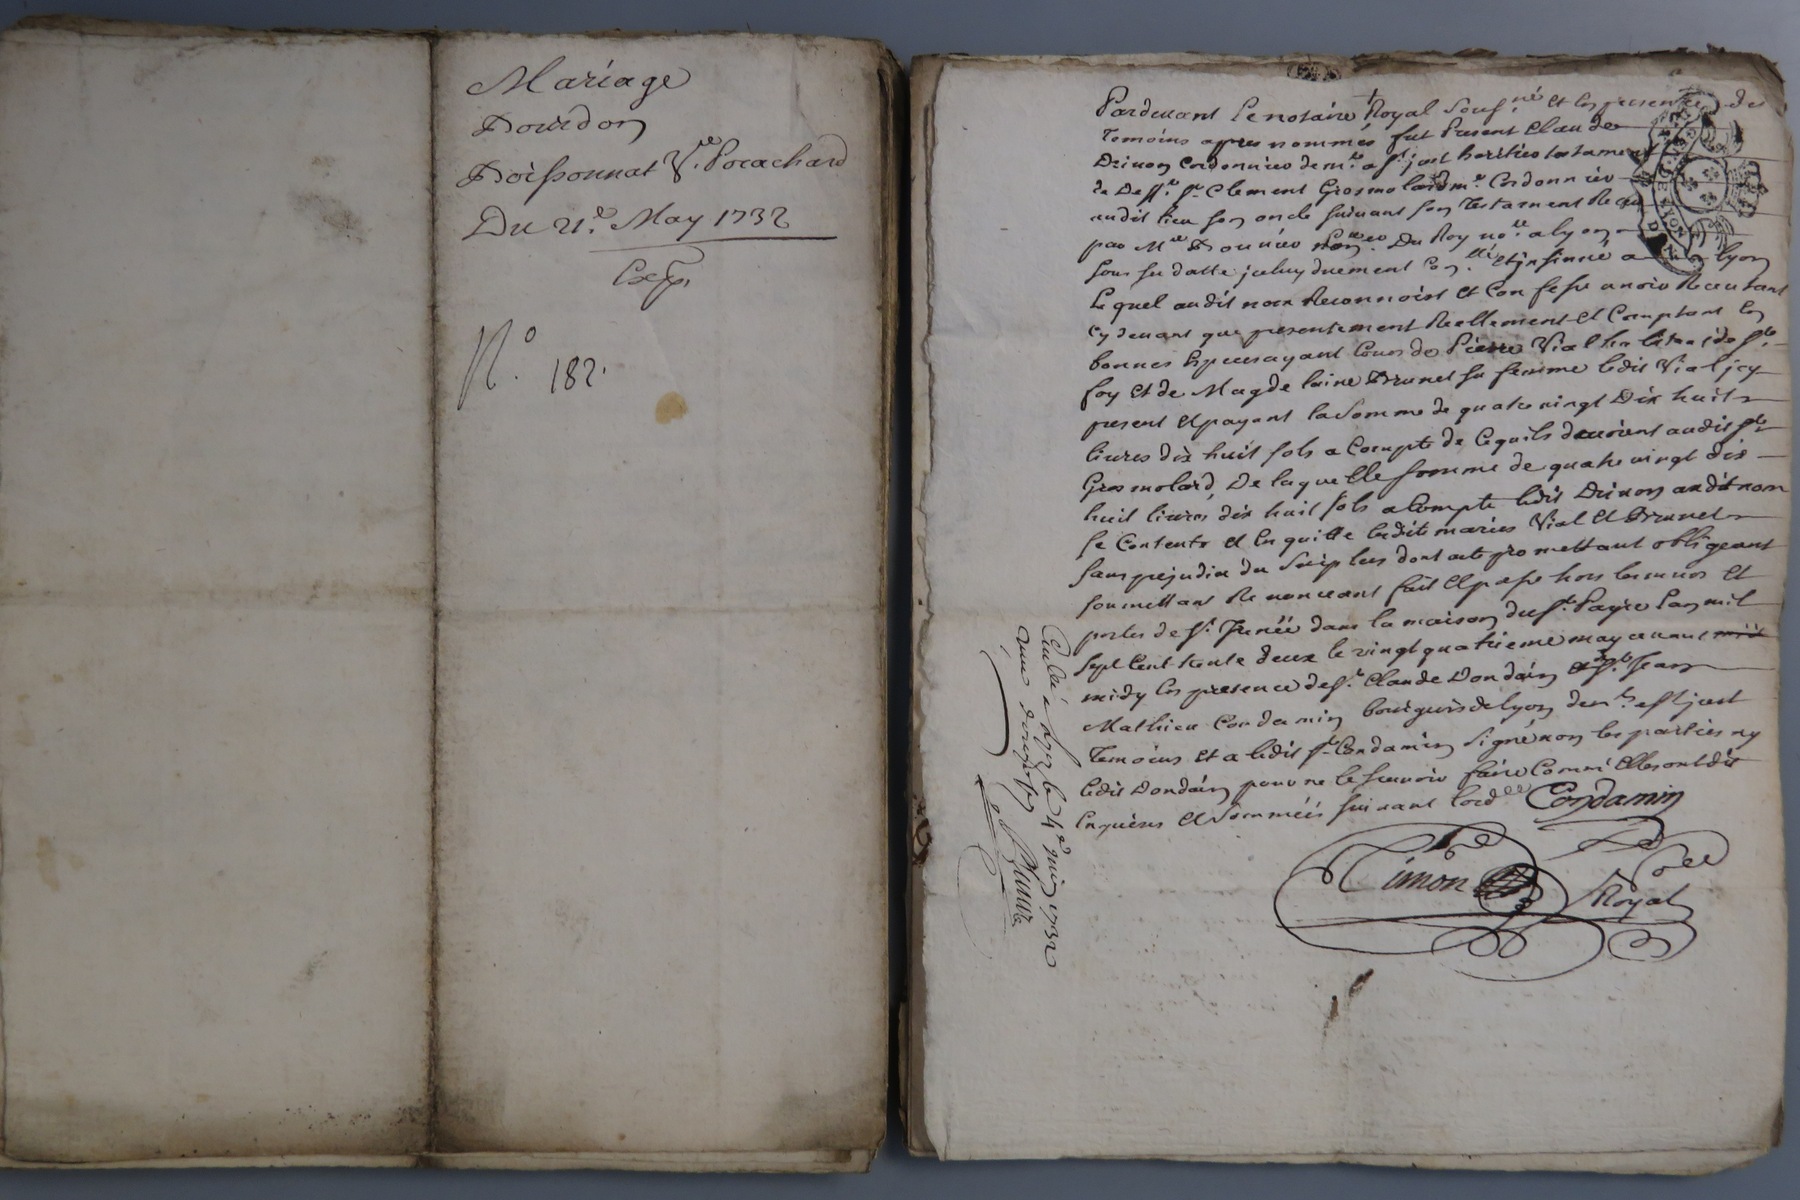 Mariage
Dourdon
Boissonnat Vve. Pocachard
Du 21e. May 1732
Exp.
N° 182.
Pardevant Le notaire Royal sousné. et En presence des
temoins apres nommés fut Present Claude
Drivon Cordonnier demt. a st. just heritier testament
re De sr. Clement Grosmolard mr. Cordonnier
audit lieu son oncle suivant son testament Receu
par Me no. Du Roy nore. a lyon
sous sa datte jceluy duement et jnsinué a lyon
Lequel audit nom Reconnoist et Confesse avoir Receu tant
Cy devant que presentement Reellement et Comptant En
bonnes Especes ayant Cours de Pierre Vial habitant de ste.
foy et de Magdelaine Brunet sa femme ledit Vial jcy
present et payant la Somme de quatre vingt Dix huit
livres dix huit sols a Compte de Ce quils devoient audit sr.
Grosmolard, De laquelle somme de quatre vingt dix
huit livres dix huit sols a Compte ledit Drivon audit nom
se Contente et En quitte lesdits mariés Vial et Brunet
sans prejudice du Surplus dont acte promettant obligeant
soumettant Renonceant fait et passé hors les murs et
portes de st. Irenée dans la maison du sr. Payre Lan mil
sept Cent trente deux le vingt quatrieme may avant
midy En presence de sr. Claude Dondain et sr. Jean
Mathieu Condamin bourgeois de lyon demts. a st just
Temoins Et a ledit sr. Condamin Signé non les parties ny
ledit Dondain pour ne le scavoir faire Comm' Elles ont dit
Enquis et Sommées suivant lord.ce Condamin
Simon Royal
a Lyon le 4e juin 1732